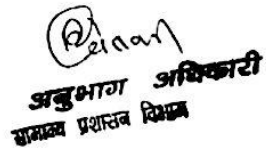 अनुभाग अधिकारी
सामान्य प्रशासन विभाग